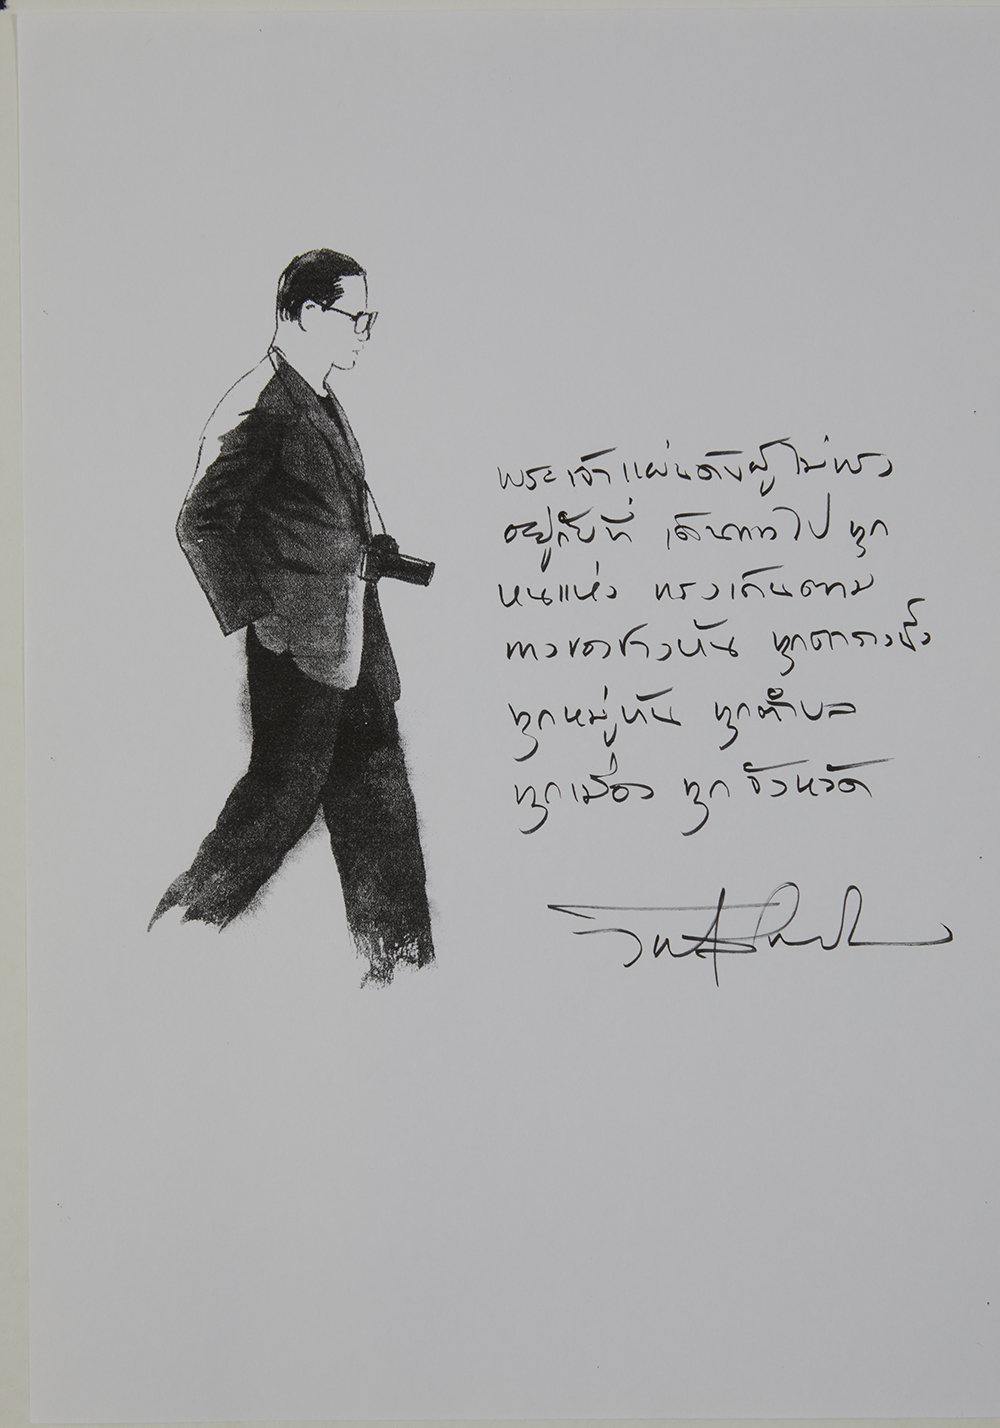 พระเจ้าแผ่นดินผู้ไม่ทรง
อยู่กับที่ เดินทางไป ทุก
หนแห่ง ทรงเดินตาม
ทางของชาวบ้าน ทุกตารางนิ้ว
ทุกหมู่บ้าน ทุกตำบล
ทุกเมือง ทุกจังหวัด